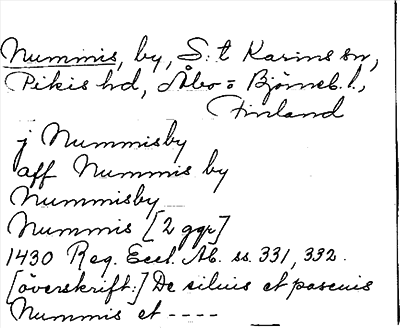 Nummis, by, S:t Karins sn,
Pikis hd, Åbo= Björneb. l.,
Finland
j Nummisby
aff Nummis by
Nummisby
Nummis [2 ggr]
1430 Reg. Eccl. Ab. ss. 331, 332.
[överskrift:] De siluis et pascuis
Nummis et ----